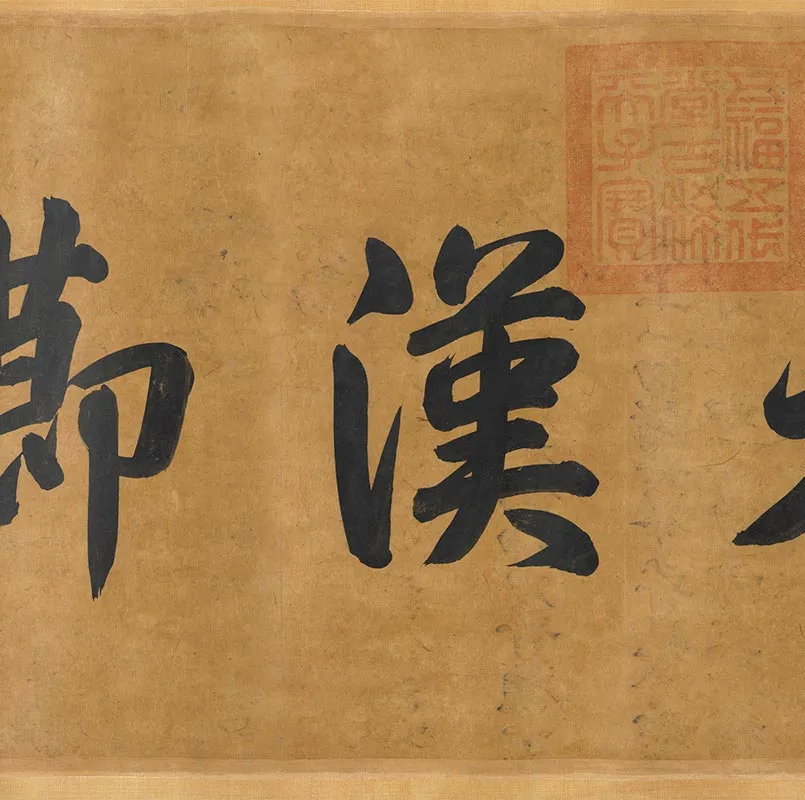 五福五代
堂古稀
天子寶
漢節